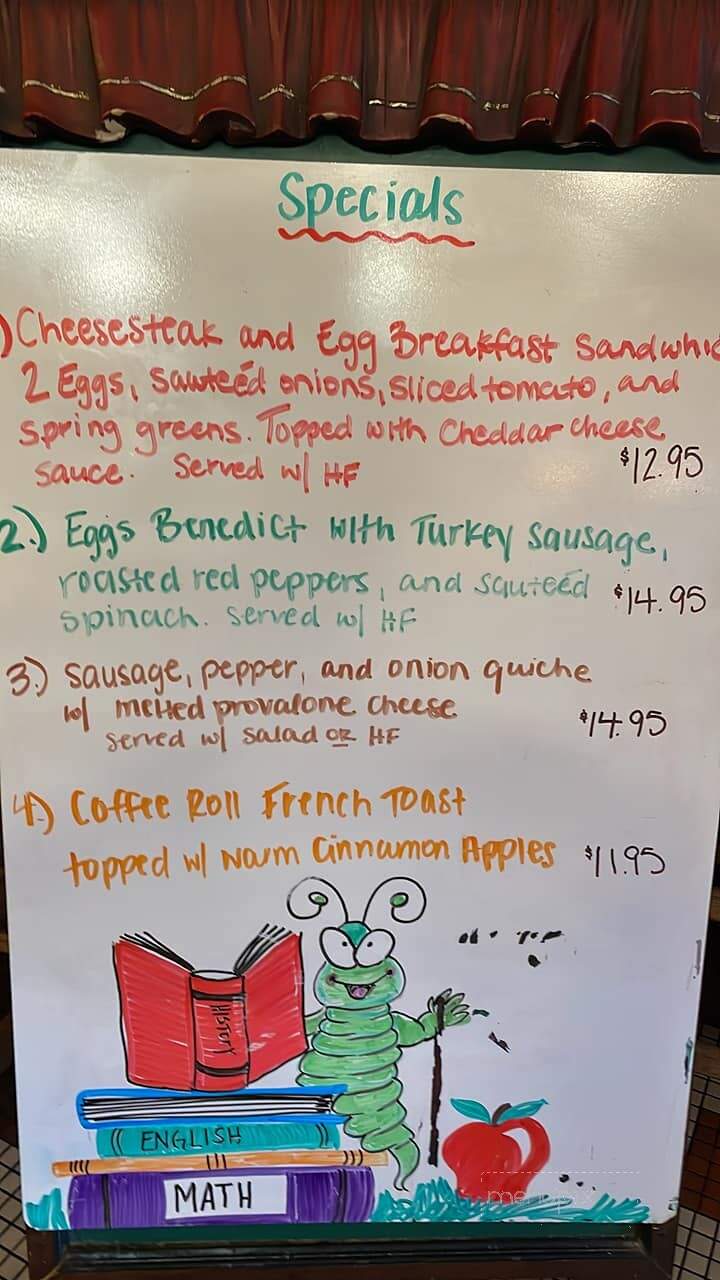 Specials
) Cheesesteak and Egg Breakfast Sandwhic
2 Eggs, sauteéd onions, sliced tomato, and
spring greens. Topped with Cheddar cheese
sauce. Served w/ HF $12.95
2.) Eggs Benedict with Turkey sausage,
roasted red peppers, and sauteéd $14.95
spinach. served w/ HF
3.) sausage, pepper, and onion quiche
w/ melted provalone cheese $14.95
served w/ salad OR HF
4.) Coffee Roll French Toast
topped w/ warm Cinnamon Apples $11.95
History
ENGLISH
MATH
menupix